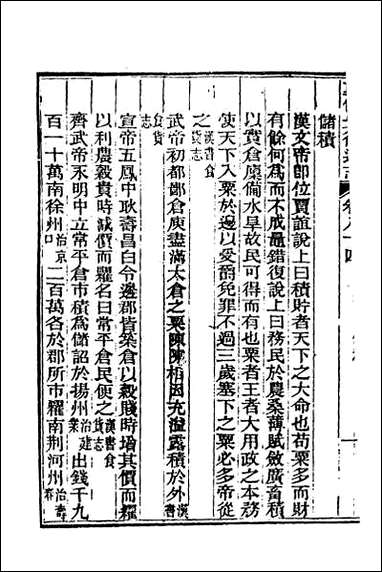 儲積
漢文帝即位賈誼說上曰積貯者天下之大命也苟粟多而財
有餘何爲而不成鼂錯復說上曰務民於農桑薄賦斂廣畜積
以實倉廩備水旱故民可得而有也粟者王者大用政之本務
使天下入粟於邊以受爵免罪不過三歲塞下之粟必多帝從
之漢書食貨志
武帝初都鄙倉庾盡滿太倉之粟陳陳相因充溢露積於外漢書
食貨志
宣帝五鳳中耿壽昌白令邊郡皆築倉以穀賤時增其價而糴
以利農穀貴時減價而糶名曰常平倉民便之漢書食貨志
齊武帝永明中立常平倉市積爲儲詔於揚州治建業出錢千九
百一十萬南徐州治京口二百萬各於郡所市糴南荆河州治壽春